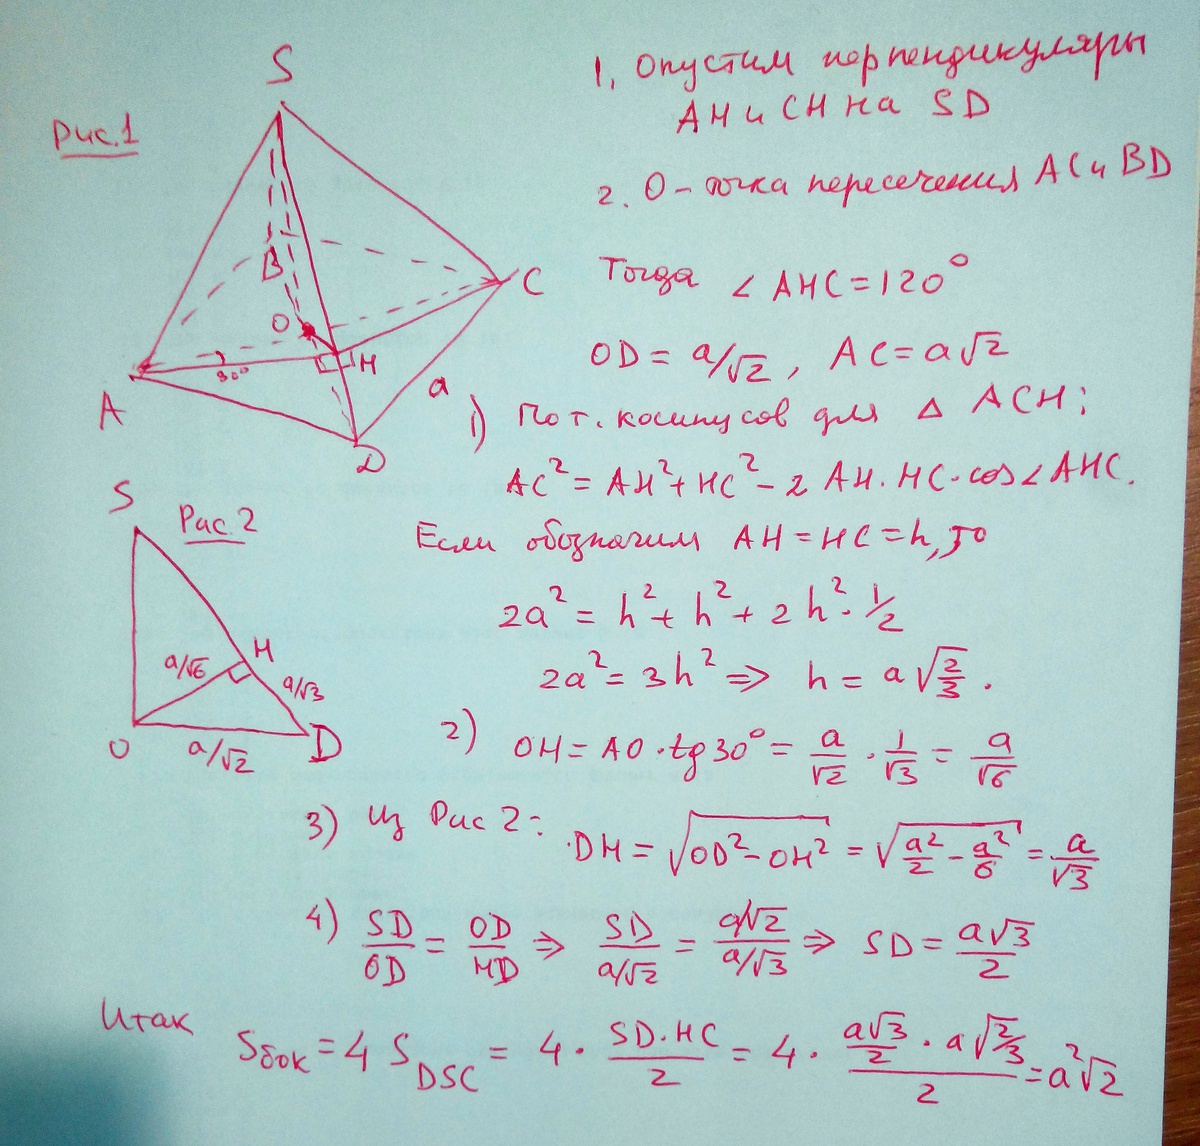 Рис.1
S
B
O
C
H
30°
A
a
D
1. Опустим перпендикуляры
AH и CH на SD
2. O - точка пересечения AC и BD
Тогда ∠AHC = 120°
OD = a/√2, AC = a√2
1) По т. косинусов для △ ACH:
AC² = AH² + HC² - 2 AH · HC · cos∠AHC.
Если обозначим AH = HC = h, то
2a² = h² + h² + 2h² · 1/2
2a² = 3h² ⇒ h = a√(2/3).
S
Рис.2
H
a/√6
a/√3
O
a/√2
D
2) OH = AO · tg 30° = a/√2 · 1/√3 = a/√6
3) Из Рис 2: DH = √(OD² - OH²) = √(a²/2 - a²/6) = a/√3
4) SD/OD = OD/HD ⇒ SD/(a/√2) = (a/√2)/(a/√3) ⇒ SD = a√3/2
Итак
Sбок = 4 S_DSC = 4 · (SD·HC)/2 = 4 · (a√3/2 · a√(2/3))/2 = a²√2